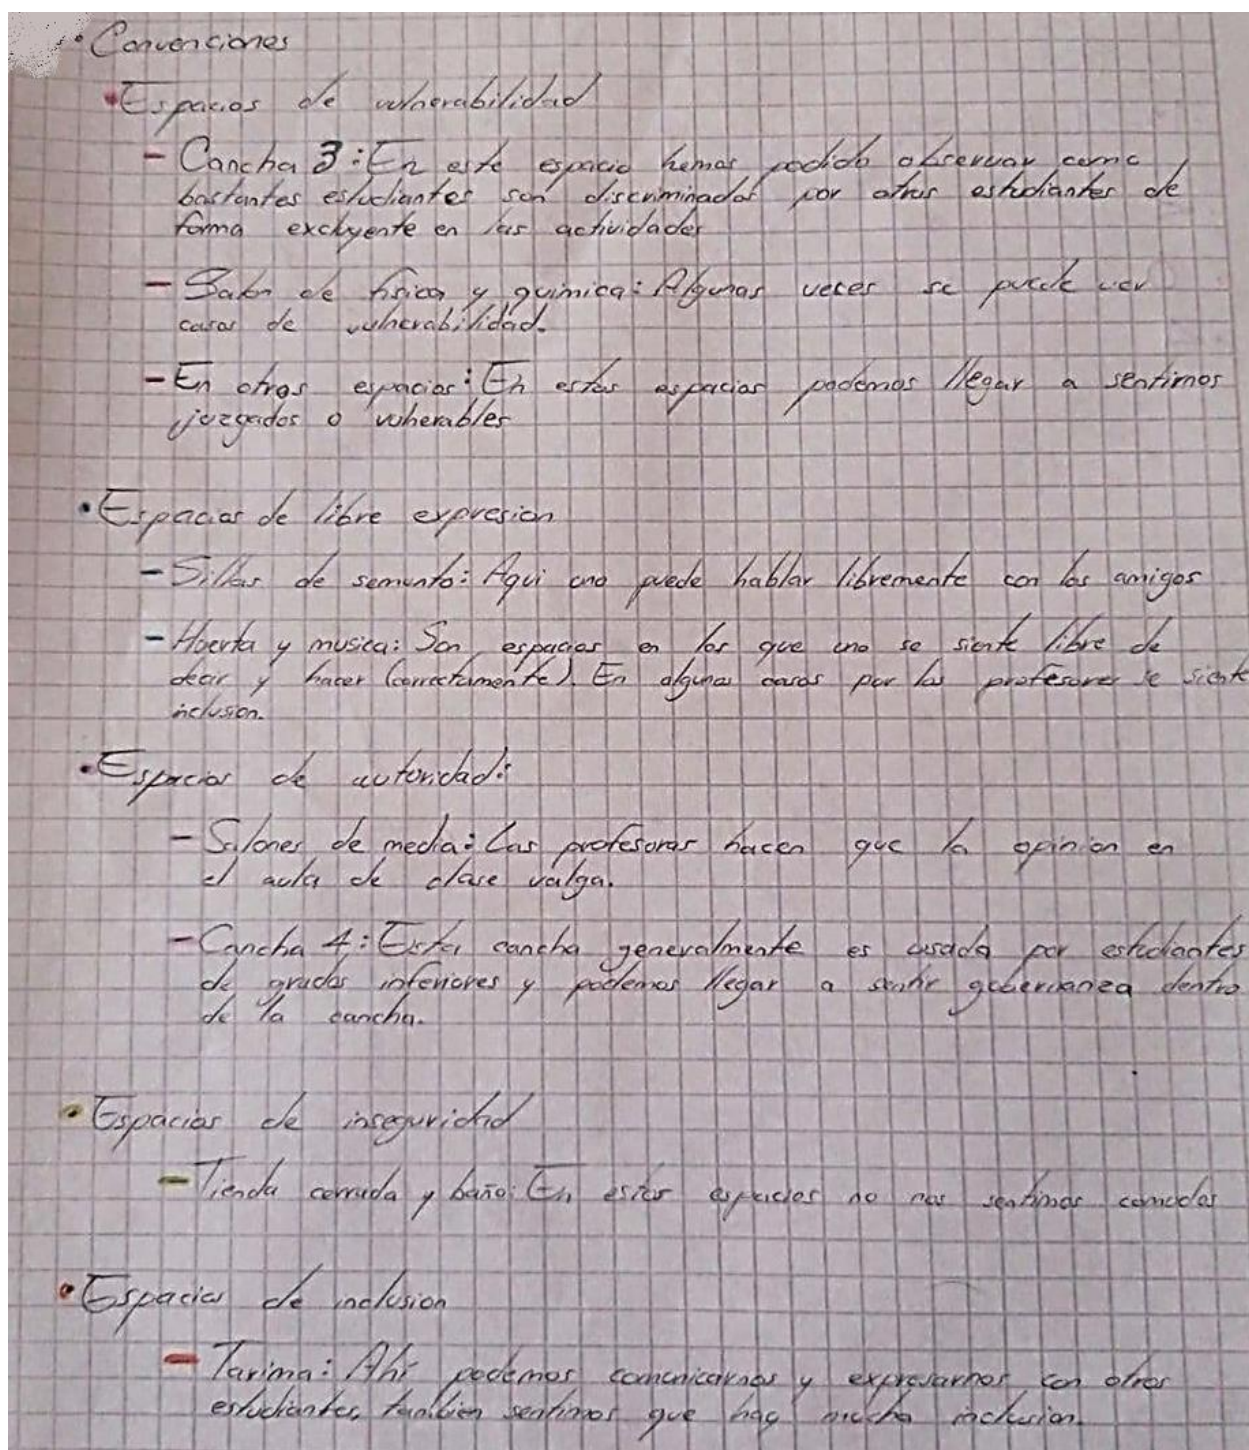 • Convenciones
• Espacios de vulnerabilidad
- Cancha 3: En este espacio hemos podido observar como
bastantes estudiantes son discriminados por otros estudiantes de
forma excluyente en las actividades
- Salon de fisica y quimica: Algunas veces se puede ver
casos de vulnerabilidad.
- En otros espacios: En estos espacios podemos llegar a sentirnos
juzgados o vulnerables
• Espacios de libre expresion
- Sillas de semento: Aqui uno puede hablar libremente con los amigos
- Huerta y musica: Son espacios en los que uno se siente libre de
decir y hacer (correctamente). En algunos casos por los profesores se siente
inclusion.
• Espacios de autoridad:
- Salones de media: Las profesoras hacen que la opinion en
el aula de clase valga.
- Cancha 4: Esta cancha generalmente es usada por estudiantes
de grados inferiores y podemos llegar a sentir gobernanza dentro
de la cancha.
• Espacios de inseguridad
- Tienda cerrada y baño: En estos espacios no nos sentimos comodos
• Espacios de inclusion
- Tarima: Ahi podemos comunicarnos y expresarnos con otros
estudiantes, tambien sentimos que hay mucha inclusion.